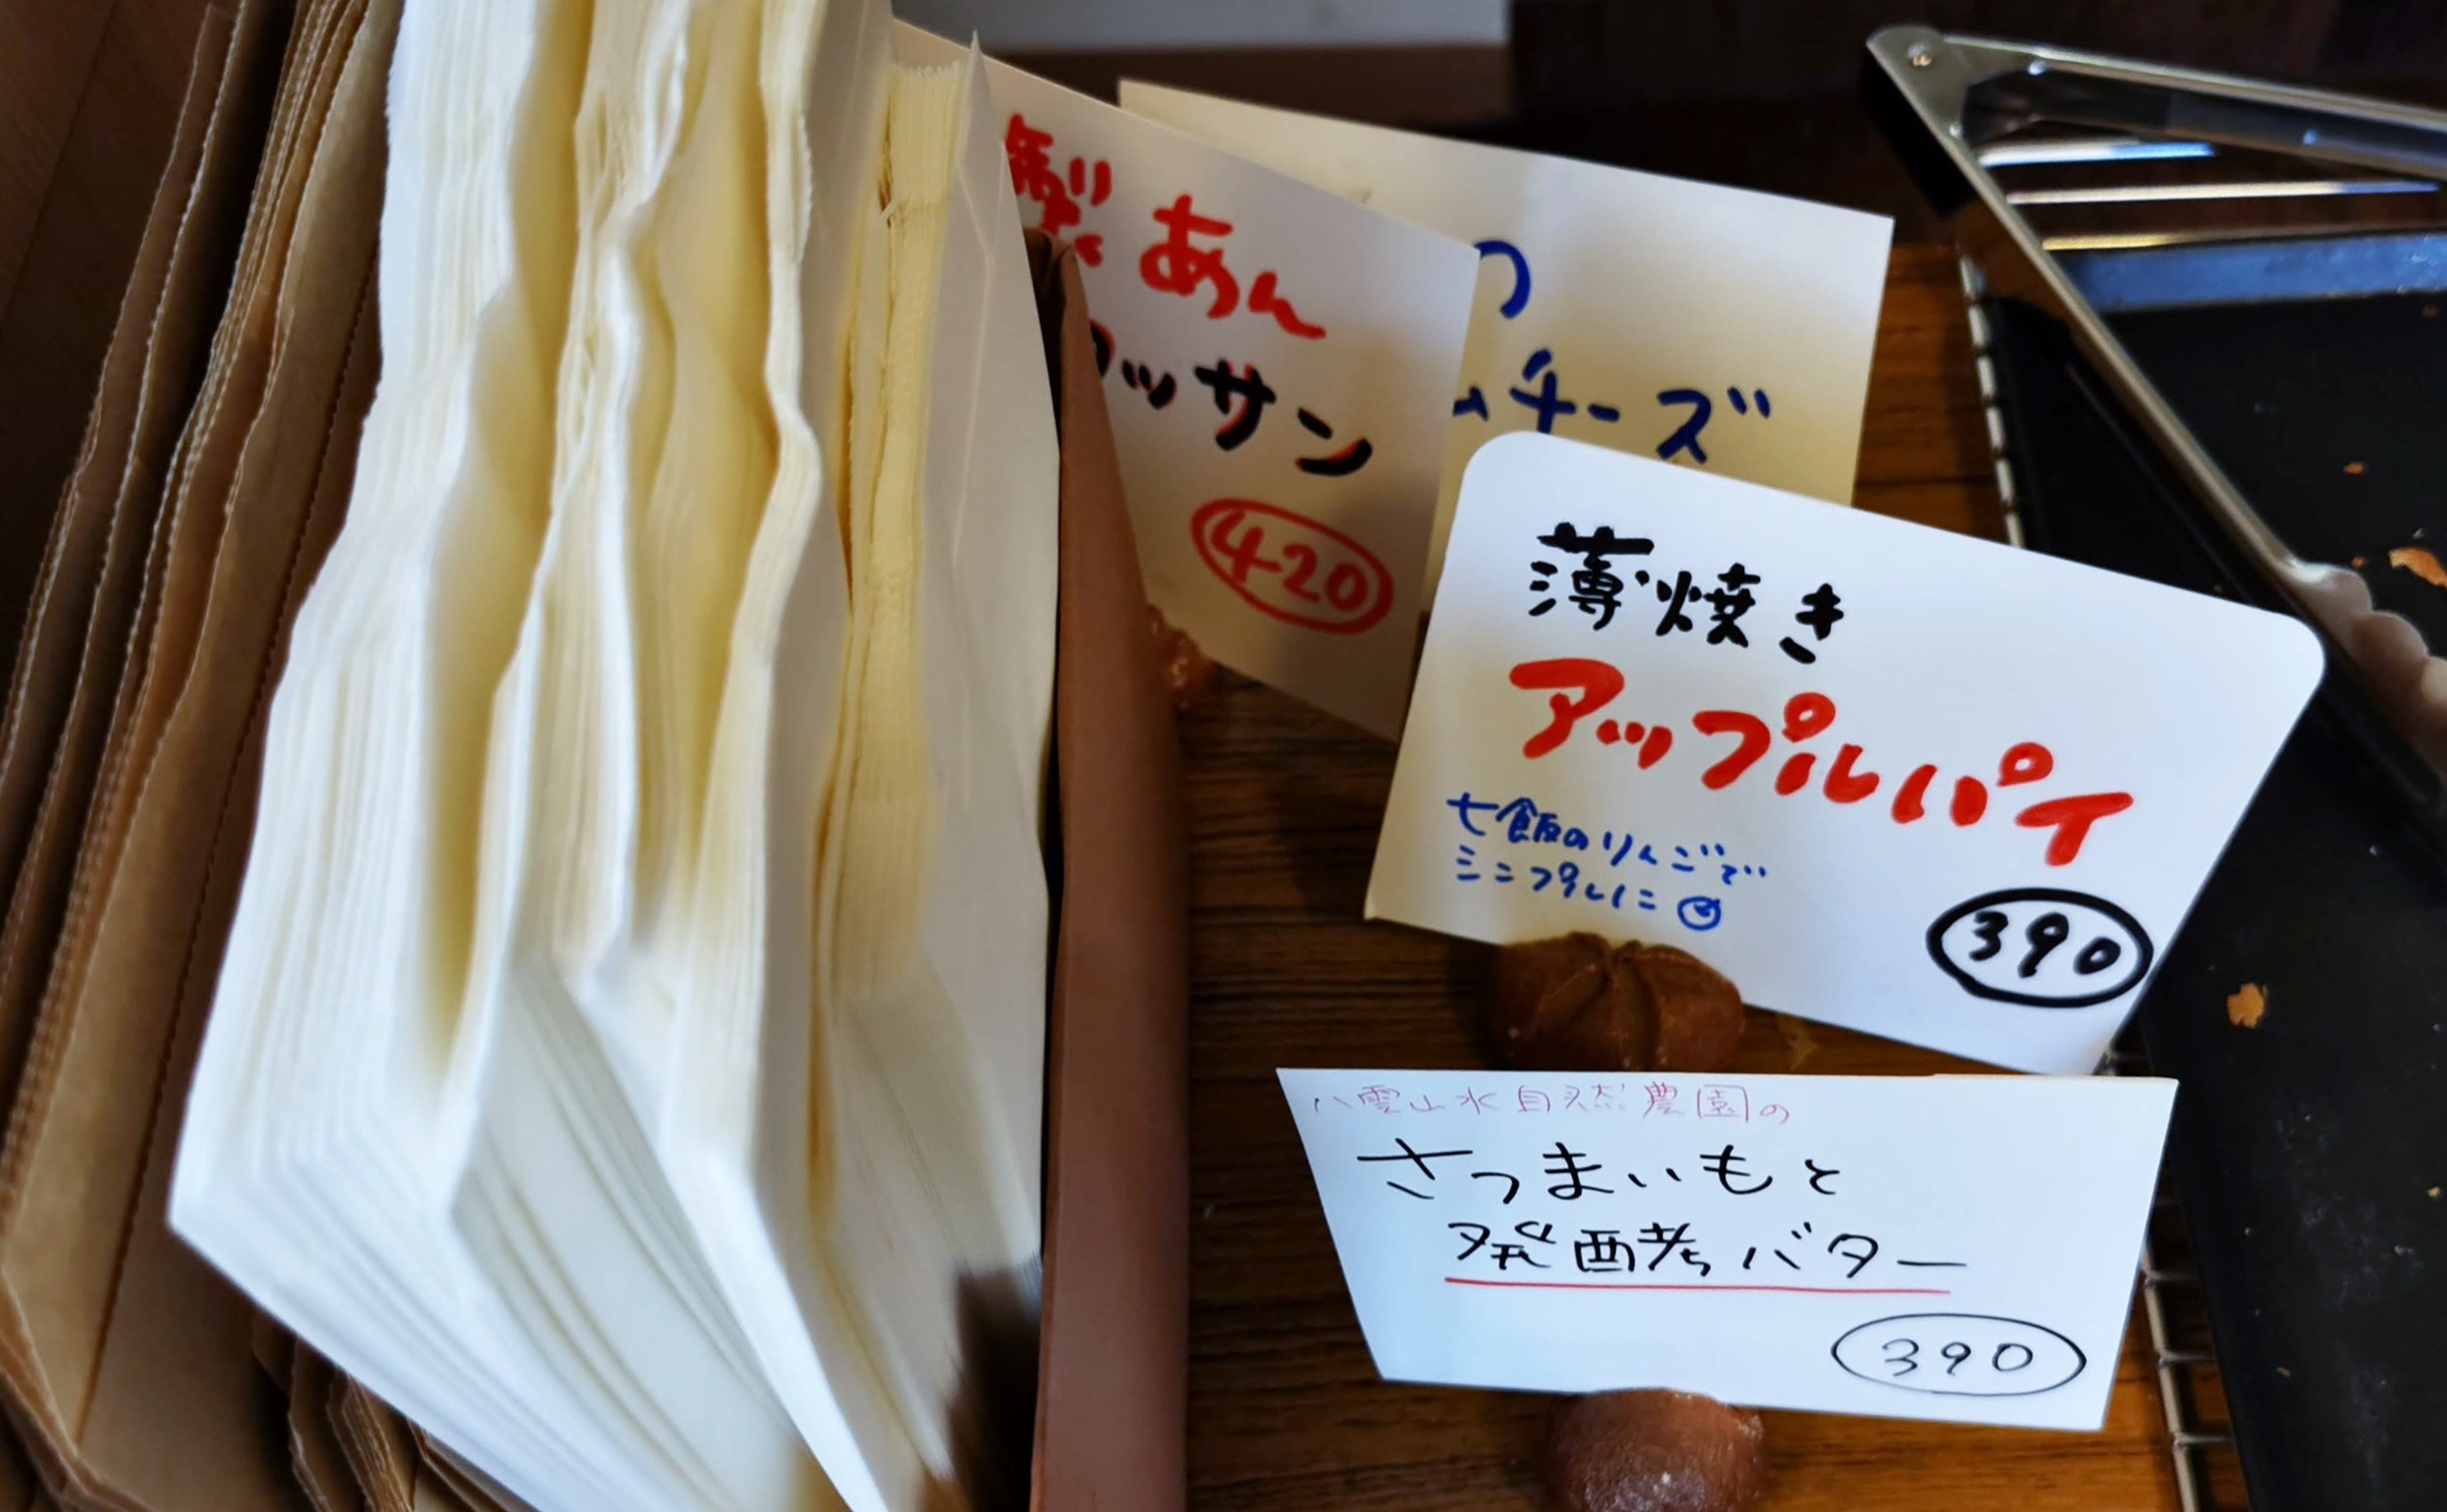 製あん
ッサン
420
の
ムチーズ
薄焼き
アップルパイ
七飯のりんごで
シンプルに
390
八雲山水自然農園の
さつまいもと
発酵バター
390